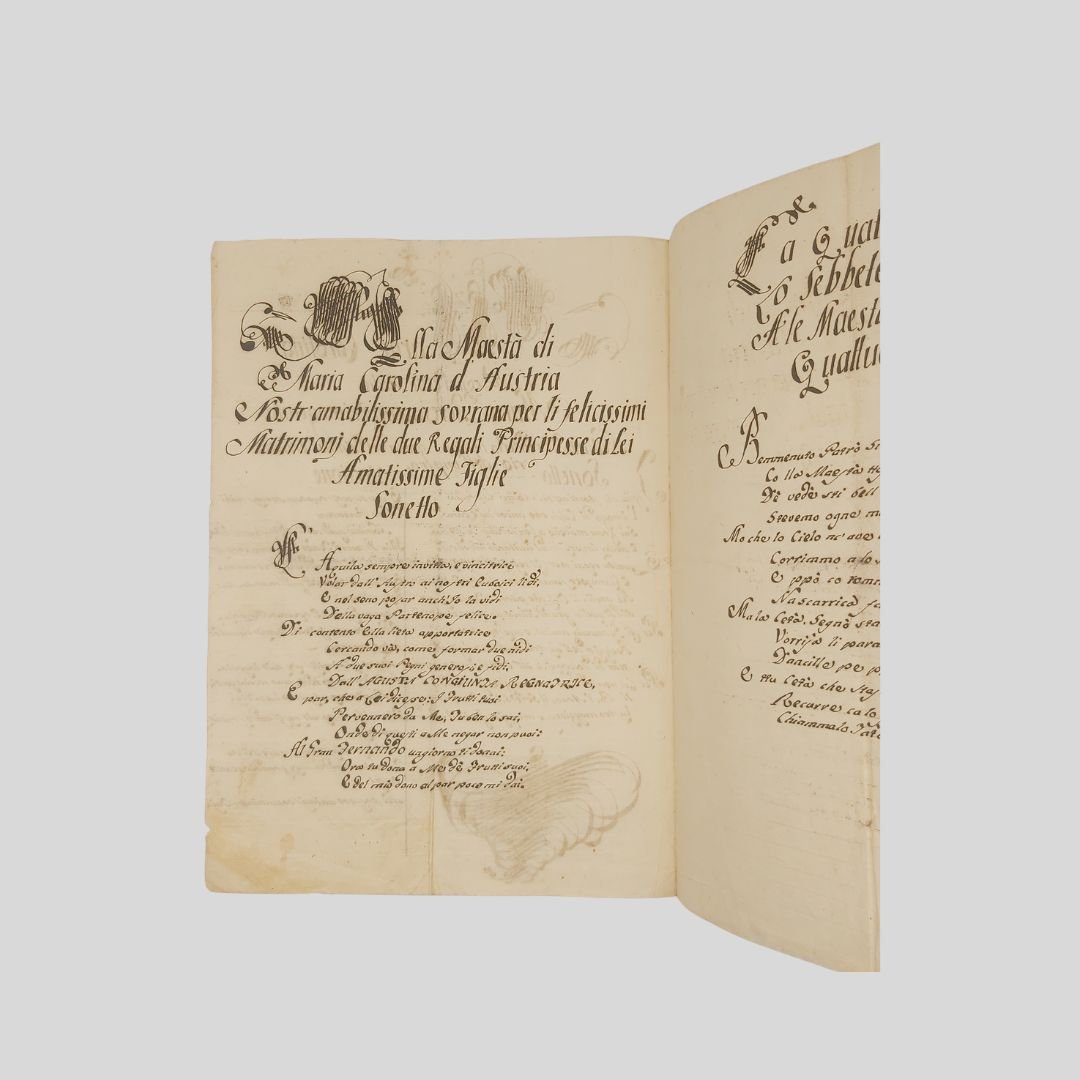 Alla Maestà di
Maria Carolina d'Austria
Nostr'amabilissima sovrana per li felicissimi
Matrimonj delle due Regali Principesse di Lei
Amatissime Figlie
Sonetto
L'Aquila sempre invitta, e vincitrice
Volar dall'Austro ai nostri Euboici lidi,
E nel seno posar anch'Io la vidi
Della vaga Partenope felice.
Di contento Ella lieta apportatrice
Cercando và, come formar due nidi
A due suoi Regni generosi e fidi,
Dall'AGUSTA CONGIUNTA REGNATRICE,
E par, che a Lei dicesse: I Frutti tuoi
Pervennero da Me, Tu ben lo sai,
Onde di questi a Me negar non puoi:
Al Gran Fernando un giorno ti donai:
Ora tu dona a Me dè Frutti suoi,
E del mio dono al par poco mi dai.
La Qua
Lo Sebbet
A le Maest
Quattu
Bemmenuto Patrò
Co lla Maestà
Dè vedè sti bell
Stevemo ogne
Mo che lo Cielo nc'ave
Corrimmo a lo
E ppò co
Nascarrica
Ma la Cetà, Segnò sta
Vorrija li para
Daacille pe
E tta Cetà che staj
Recorre ca lo
Chiammalo